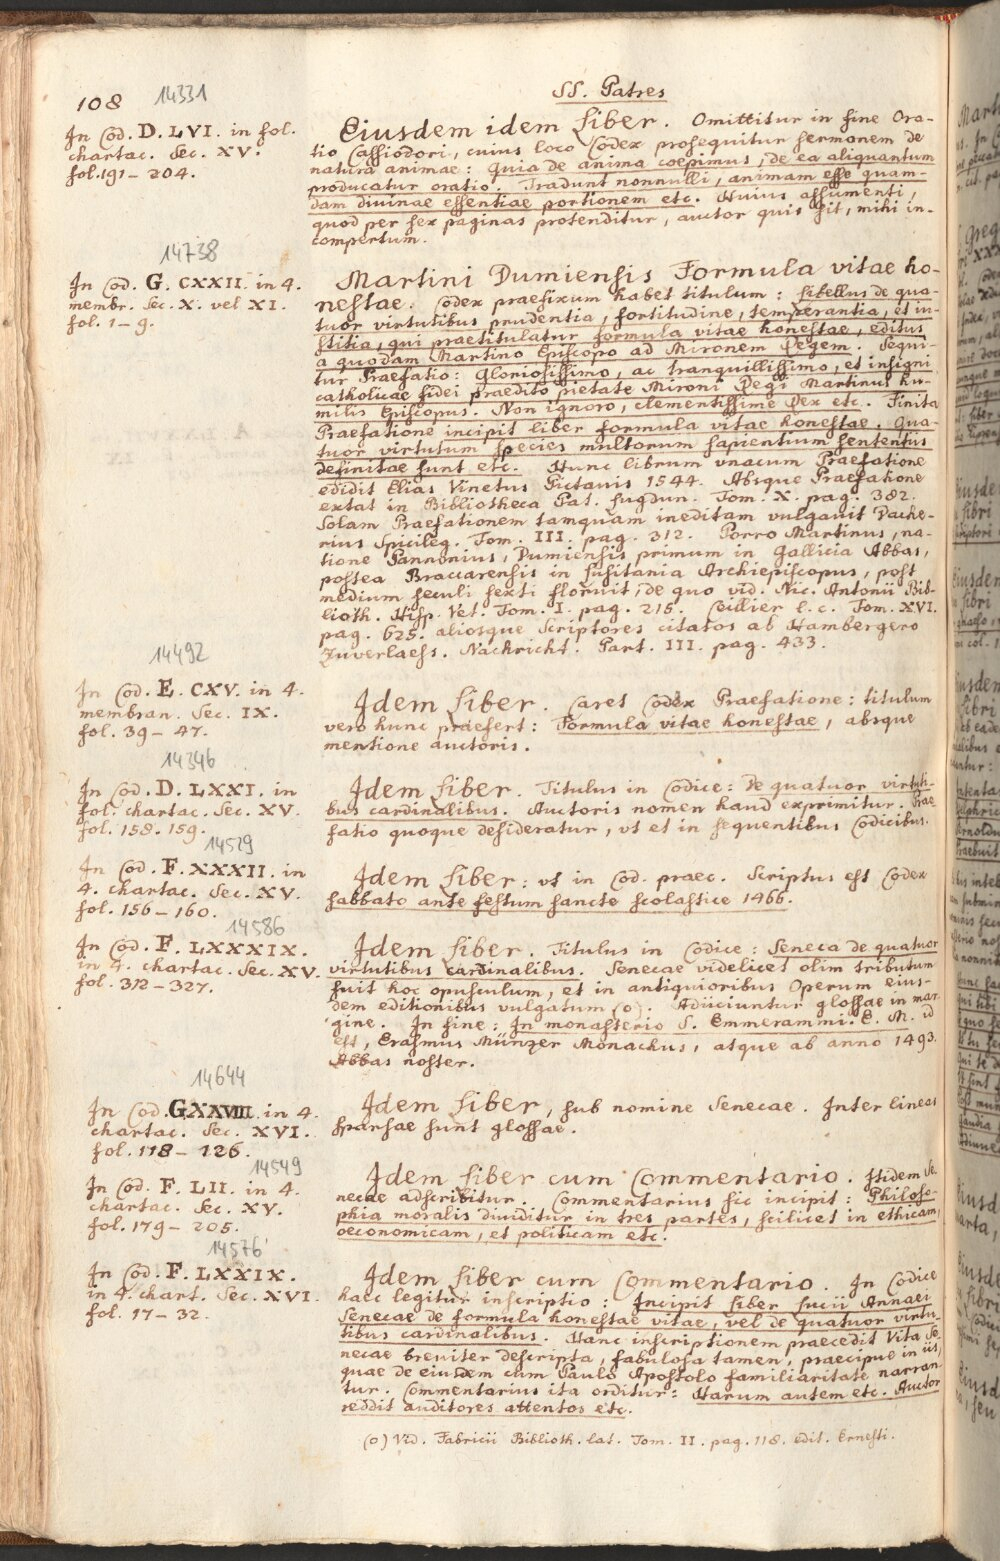 108 14331
SS. Patres
In Cod. D. LVI. in fol.
chartac. Sec. XV.
fol. 191 - 204.
Eiusdem idem Liber. Omittitur in fine Ora-
tio Cassiodori, cuius loco Codex prosequitur sermonem de
natura animae: Quia de anima coepimus, de ea aliquantum
producatur oratio. Tradunt nonnulli, animam esse quam-
dam divinae essentiae portionem etc. Huius assumenti,
quod per sex paginas protenditur, auctor quis sit, mihi in-
compertum.
14738
In Cod. G. CXXII. in 4.
membr. Sec. X. vel XI.
fol. 1 - 9.
Martini Dumiensis Formula vitae ho-
nestae. Codex praefixum habet titulum: Libellus de qua-
tuor virtutibus prudentia, fortitudine, temperantia, et iu-
stitia, qui praetitulatur formula vitae honestae, editus
a quodam Martino Episcopo ad Mironem Regem. Sequi-
tur Praefatio: Gloriosissimo, ac tranquillissimo, et insigni
catholicae fidei praedito pietate Mironi Regi Martinus hu-
milis Episcopus. Non ignoro, clementissime Rex etc. Finita
Praefatione incipit liber formula vitae honestae. Qua-
tuor virtutum species multorum sapientium sententiis
definitae sunt etc. Hunc librum vnacum Praefatione
edidit Elias Vinetus Pictauis 1544. Absque Praefatione
extat in Bibliotheca Pat. Lugdun. Tom. X. pag. 382.
Solam Praefationem tamquam ineditam vulgauit Dache-
rius Spicileg. Tom. III. pag. 312. Porro Martinus, na-
tione Pannonius, Dumiensis primum in Gallicia Abbas,
postea Braccarensis in Lusitania Archiepiscopus, post
medium seculi sexti floruit, de quo vid. Nic. Antonii Bib-
lioth. Hisp. Vet. Tom. I. pag. 215. Ceillier l. c. Tom. XVI.
pag. 625. aliosque Scriptores citatos ab Hambergero
Zuverlaess. Nachricht. Part. III. pag. 433.
14492
In Cod. E. CXV. in 4.
membran. Sec. IX.
fol. 39 - 47.
Idem Liber. Caret Codex Praefatione: titulum
vero hunc praefert: Formula vitae honestae, absque
mentione auctoris.
14346
In Cod. D. LXXI. in
fol. chartac. Sec. XV.
fol. 158. 159.
Idem Liber. Titulus in Codice: De quatuor virtuti-
bus cardinalibus. Auctoris nomen haud exprimitur. Prae
fatio quoque desideratur, vt et in sequentibus Codicibus.
14529
In Cod. F. XXXII. in
4. chartac. Sec. XV.
fol. 156 - 160.
Idem Liber: vt in Cod. praec. Scriptus est Codex
sabbato ante festum sancte scolastice 1466.
14586
In Cod. F. LXXXIX.
in 4. chartac. Sec. XV.
fol. 312 - 327.
Idem Liber. Titulus in Codice: Seneca de quatuor
virtutibus cardinalibus. Senecae videlicet olim tributum
fuit hoc opusculum, et in antiquioribus Operum eius-
dem editionibus vulgatum (o). Adiiciuntur glossae in mar
gine. In fine: In monasterio S. Emmerammi. E. M. id
est, Erasmus Münzer Monachus, atque ab anno 1493.
Abbas noster.
14644
In Cod. GXXVIII. in 4.
chartac. Sec. XVI.
fol. 118 - 126.
Idem Liber, sub nomine Senecae. Inter lineas
sparsae sunt glossae.
14549
In Cod. F. LII. in 4.
chartac. Sec. XV.
fol. 179 - 205.
Idem Liber cum Commentario. Itidem Se-
necae adscribitur. Commentarius sic incipit: Philoso-
phia moralis diuiditur in tres partes, scilicet in ethicam,
oeconomicam, et politicam etc.
14576
In Cod. F. LXXIX.
in 4. chart. Sec. XVI.
fol. 17 - 32.
Idem Liber cum Commentario. In Codice
haec legitur inscriptio: Incipit Liber Lucii Annaei
Senecae de formula honestae vitae, vel de quatuor virtu-
tibus cardinalibus. Hanc inscriptionem praecedit Vita Se-
necae breuiter descripta, fabulosa tamen, praecipue in iis,
quae de eiusdem cum Paulo Apostolo familiaritate narran
tur. Commentarius ita orditur: Harum autem etc. Auctor
reddit auditores attentos etc.
(o) Vid. Fabricii Biblioth. lat. Tom. II. pag. 118. edit. Ernesti.